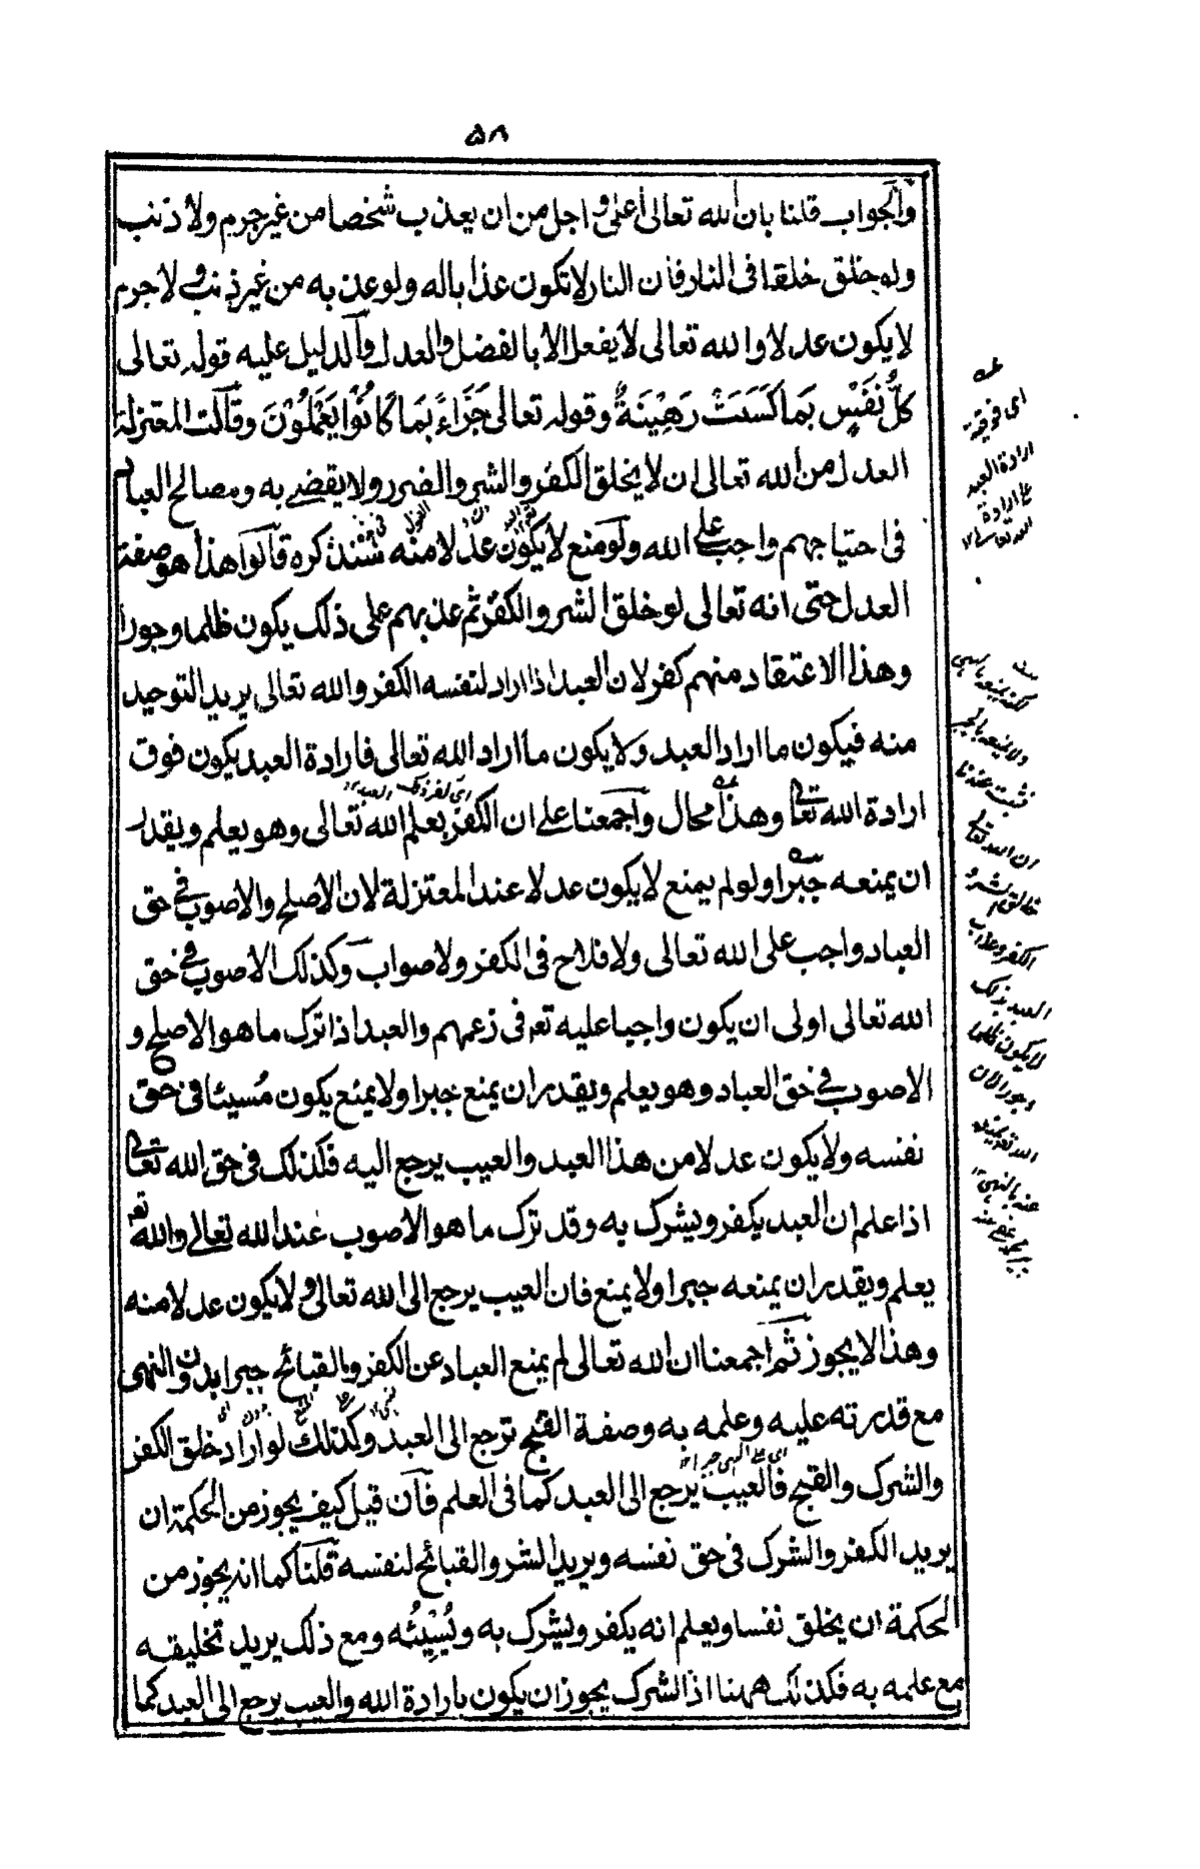 ٥٨
والجواب قلنا بان الله تعالى اعلى و اجل من ان يعذب شخصا من غير جرم ولا ذنب
ولو خلق خلقا فى النار فان النار لا تكون عذابا له ولو عذبه من غير ذنب و لا جرم
لا يكون عدلا والله تعالى لا يفعل الا بالفضل والعدل والدليل عليه قوله تعالى
كُلُّ نَفْسٍ بِمَا كَسَبَتْ رَهِيْنَةٌ وقوله تعالى جَزَاءً بِمَا كَانُوْا يَعْمَلُوْنَ وقالت المعتزلة
العدل من الله تعالى ان لا يخلق الكفر والشر والضرر ولا يقضے به ومصالح العباد
فى احتياجهم واجب على الله ولو منع لا يكون عدلا منه كره قالوا هذا هو صفة
العدل حتى انه تعالى لو خلق الشر والكفر ثم عذبهم على ذلك يكون ظلما وجورا
وهذا الاعتقاد منهم كفر لان العبد اذا اراد لنفسه الكفر والله تعالى يريد التوحيد
منه فيكون ما اراد العبد ولا يكون ما اراد الله تعالى فارادة العبد يكون فوق
ارادة الله تعالى وهذا محال واجمعنا علے ان الكفر بعلم الله تعالى وهو يعلم ويقدر
ان يمنعه جبرا ولو لم يمنع لا يكون عدلا عند المعتزلة لان الاصلح والاصوب فے حق
العباد واجب على الله تعالى ولا فلاح فى الكفر ولا صواب وكذلك الاصوب فے حق
الله تعالى اولى ان يكون واجبا عليه تعه فى زعمهم والعبد اذا ترك ما هو الاصلح و
الاصوب فے حق العباد وهو يعلم ويقدر ان يمنع جبرا ولا يمنع يكون مُسيئا فى حق
نفسه ولا يكون عدلا من هذا العبد والعيب يرجع اليه فكذلك فى حق الله تعالى
اذا علم ان العبد يكفر ويشرك به وقد ترك ما هو الاصوب عند الله تعالے والله تعه
يعلم ويقدر ان يمنعه جبرا ولا يمنع فان العيب يرجع الى الله تعالى ولا يكون عدلا منه
وهذا لا يجوز ثم اجمعنا ان الله تعالى لم يمنع العباد عن الكفر والقبائح جبرا بدون النهى
مع قدرته عليه وعلمه به وصفة القبح ترجع الى العبد وكذلك لو اراد خلق الكفر
والشرك والقبح فالعيب يرجع الى العبد كما فى العلم فان قيل كيف يجوز من الحكمة ان
يريد الكفر والشرك فى حق نفسه ويريد الشر والقبائح لنفسه قلنا كما انه يجوز من
الحكمة ان يخلق نفسا ويعلم انه يكفر ويشرك به ويُسِيْئُه ومع ذلك يريد تخليقه
مع علمه به فكذلك ههنا اذ الشرك يجوز ان يكون بارادة الله والعيب يرجع الى العبد كما
عه
اى فوقية
ارادة العبد
على ارادة
الله تعالى ١٢
ولا يمنعه بالجبر
فثبت عندنا
ان الله تعالى
الكفر وعذاب
العبد بذلك
لا يكون ظلما
وجورا لان
الله تعه يمنعه
عنه بالنهى ١٢